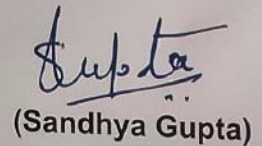 SGupta
(Sandhya Gupta)